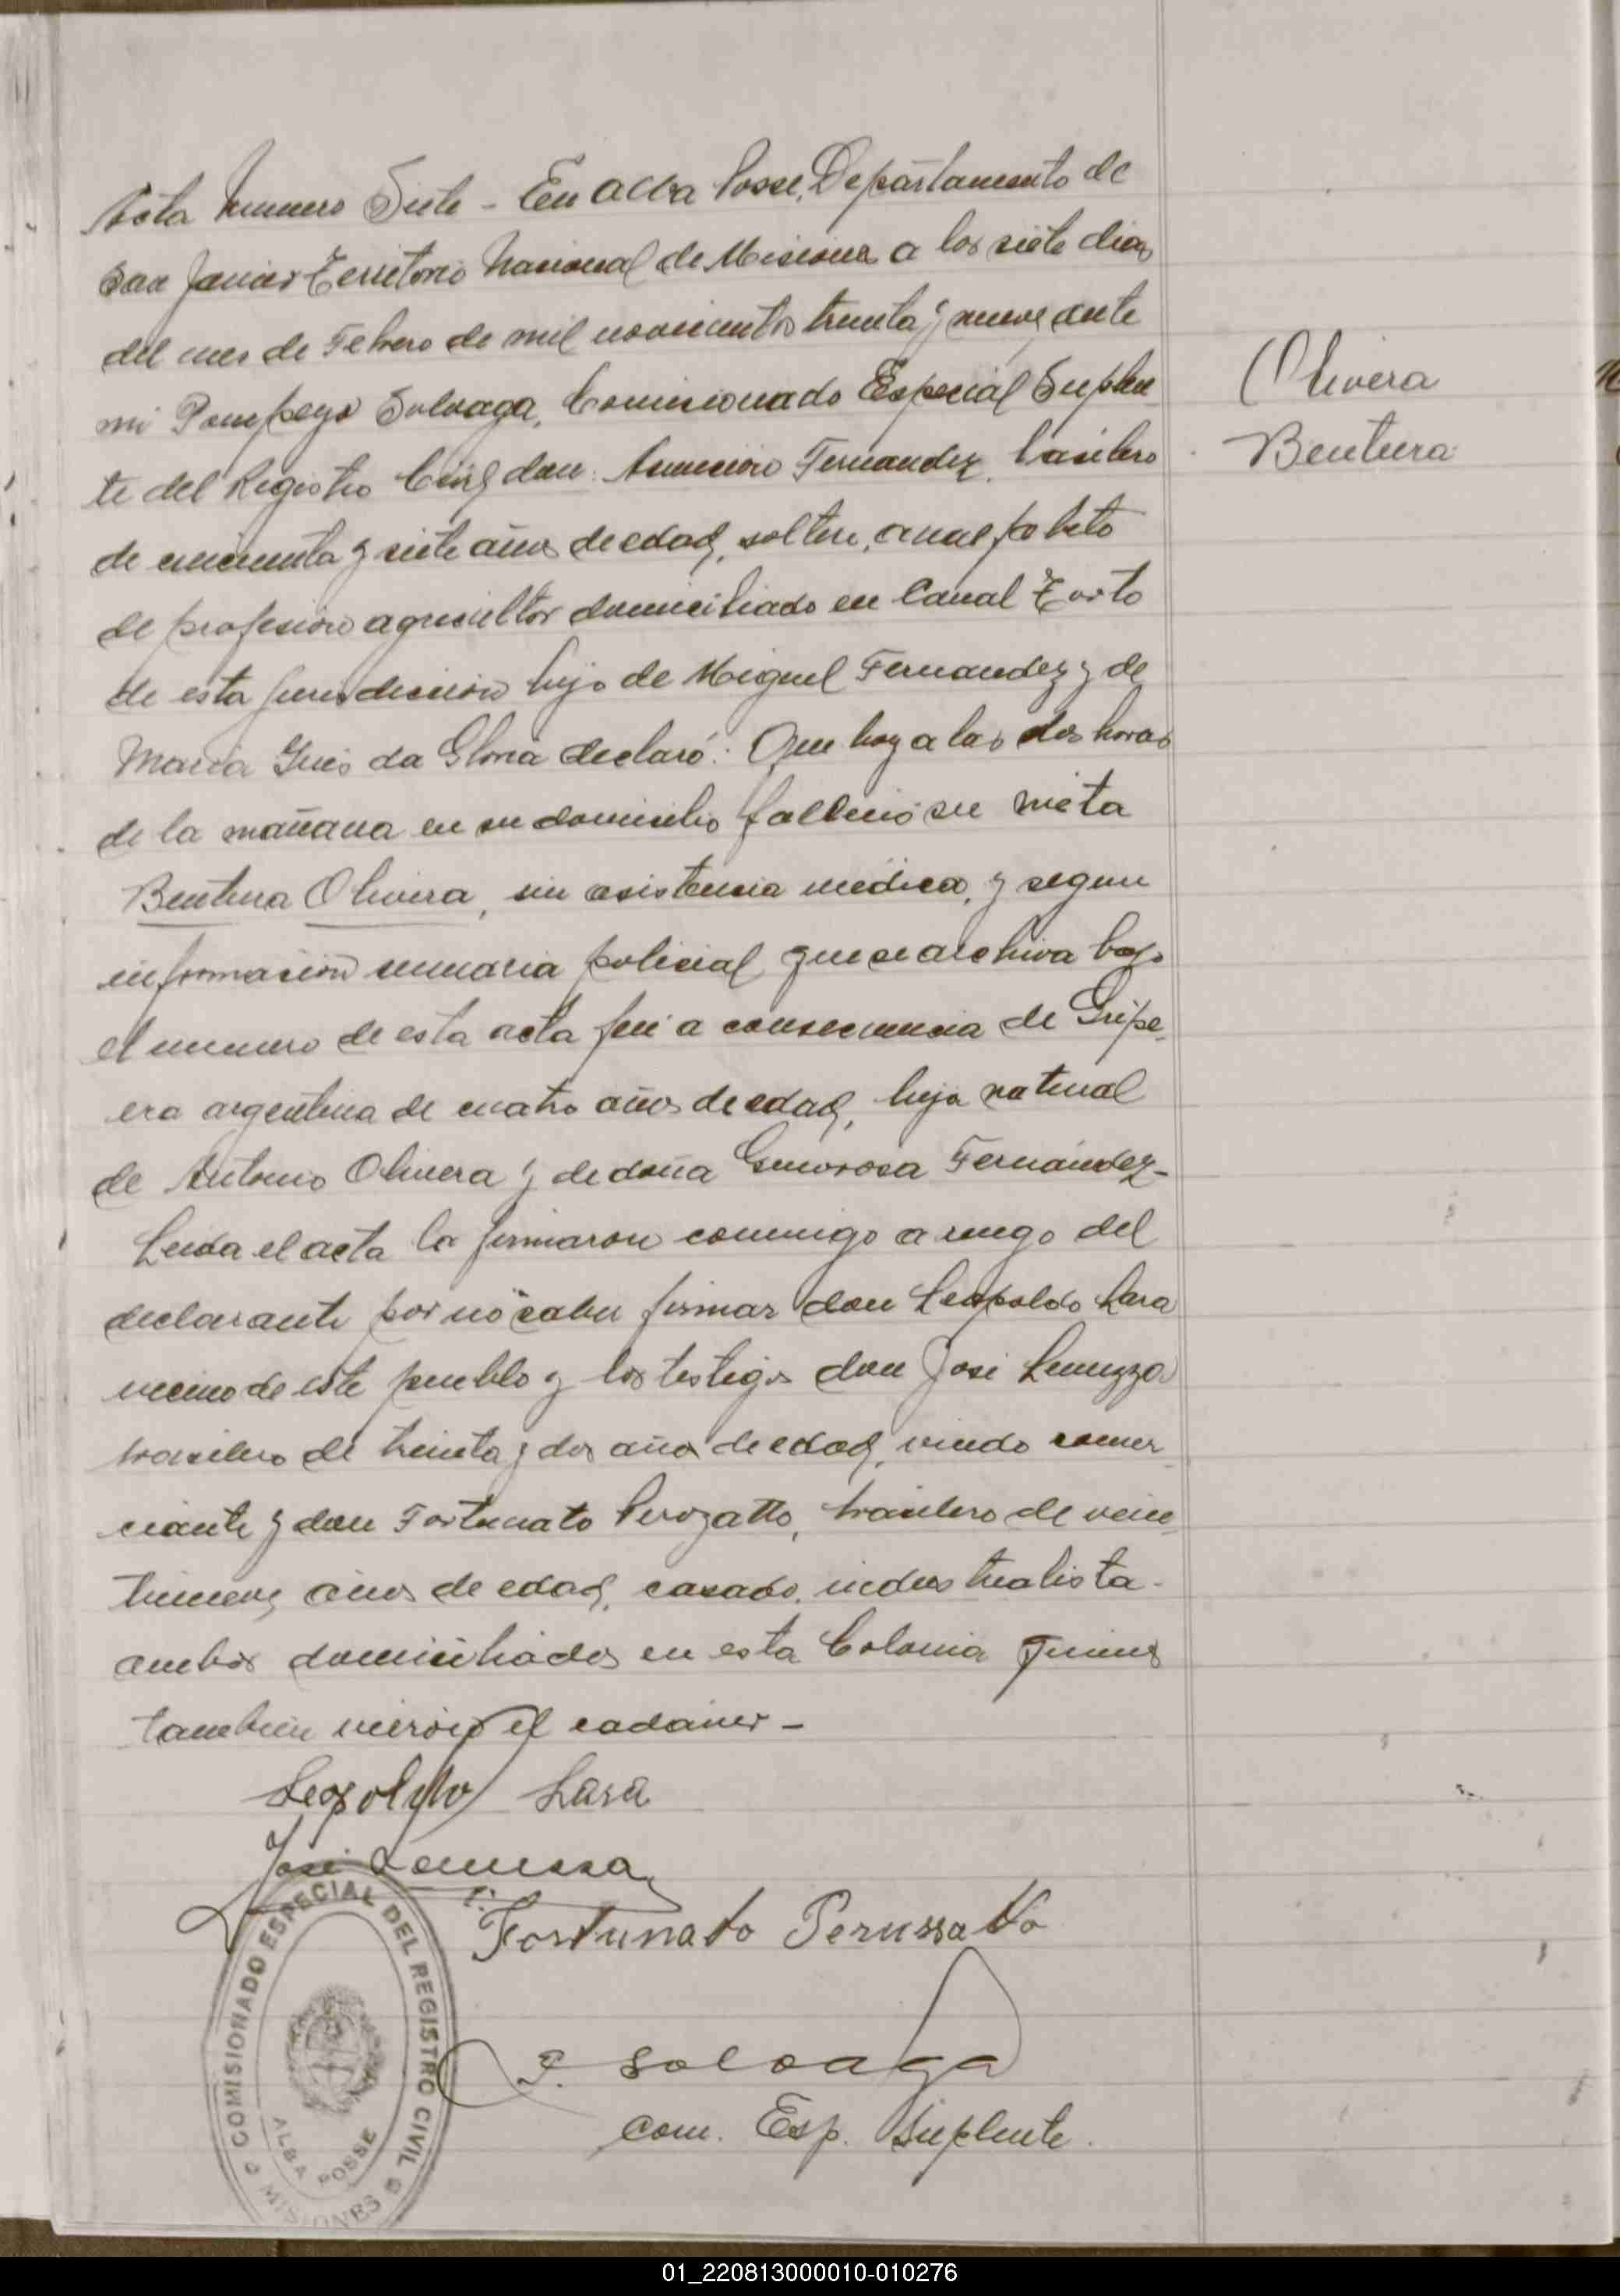 Acta Numero Siete - En Alba Posse, Departamento de
San Javier Territorio Nacional de Misiones a los siete dias
del mes de Febrero de mil novecientos treinta y nueve, ante
mi Pompeyo Soloaga, Comisionado Especial Suplen
te del Registro Civil, don: Asuncion Fernandez, brasilero
de cincuenta y siete años de edad, soltero, analfabeto
de profesion agricultor domiciliado en Canal Torto
de esta jurisdiccion hijo de Miguel Fernandez y de
Maria Ines da Gloria declaró: Que hoy a las dos horas
de la mañana en su domicilio fallecio su nieta
Bentura Olivera, sin asistencia medica, y segun
informacion sumaria policial que se archiva bajo
el numero de esta acta fué a consecuencia de Gripe,
era argentina de cuatro años de edad, hija natural
de Antonio Olivera y de doña Generosa Fernández-
Leida el acta la firmaron conmigo a ruego del
declarante por no saber firmar don Leopoldo Lara
vecino de este pueblo y los testigos don José
brasilero de treinta y dos años de edad, viudo comer
ciante y don Fortunato Perozatto, brasilero de vein
tinueve años de edad, casado, industrialista-
ambos domiciliados en esta Colonia quienes
tambien vieron el cadáver -
Leopoldo Lara
José
Fortunato Perussatto
P. Soloaga
Com. Esp. Suplente.
Olivera
Bentura
COMISIONADO ESPECIAL DEL REGISTRO CIVIL
ALBA POSSE
MISIONES
01_220813000010-010276